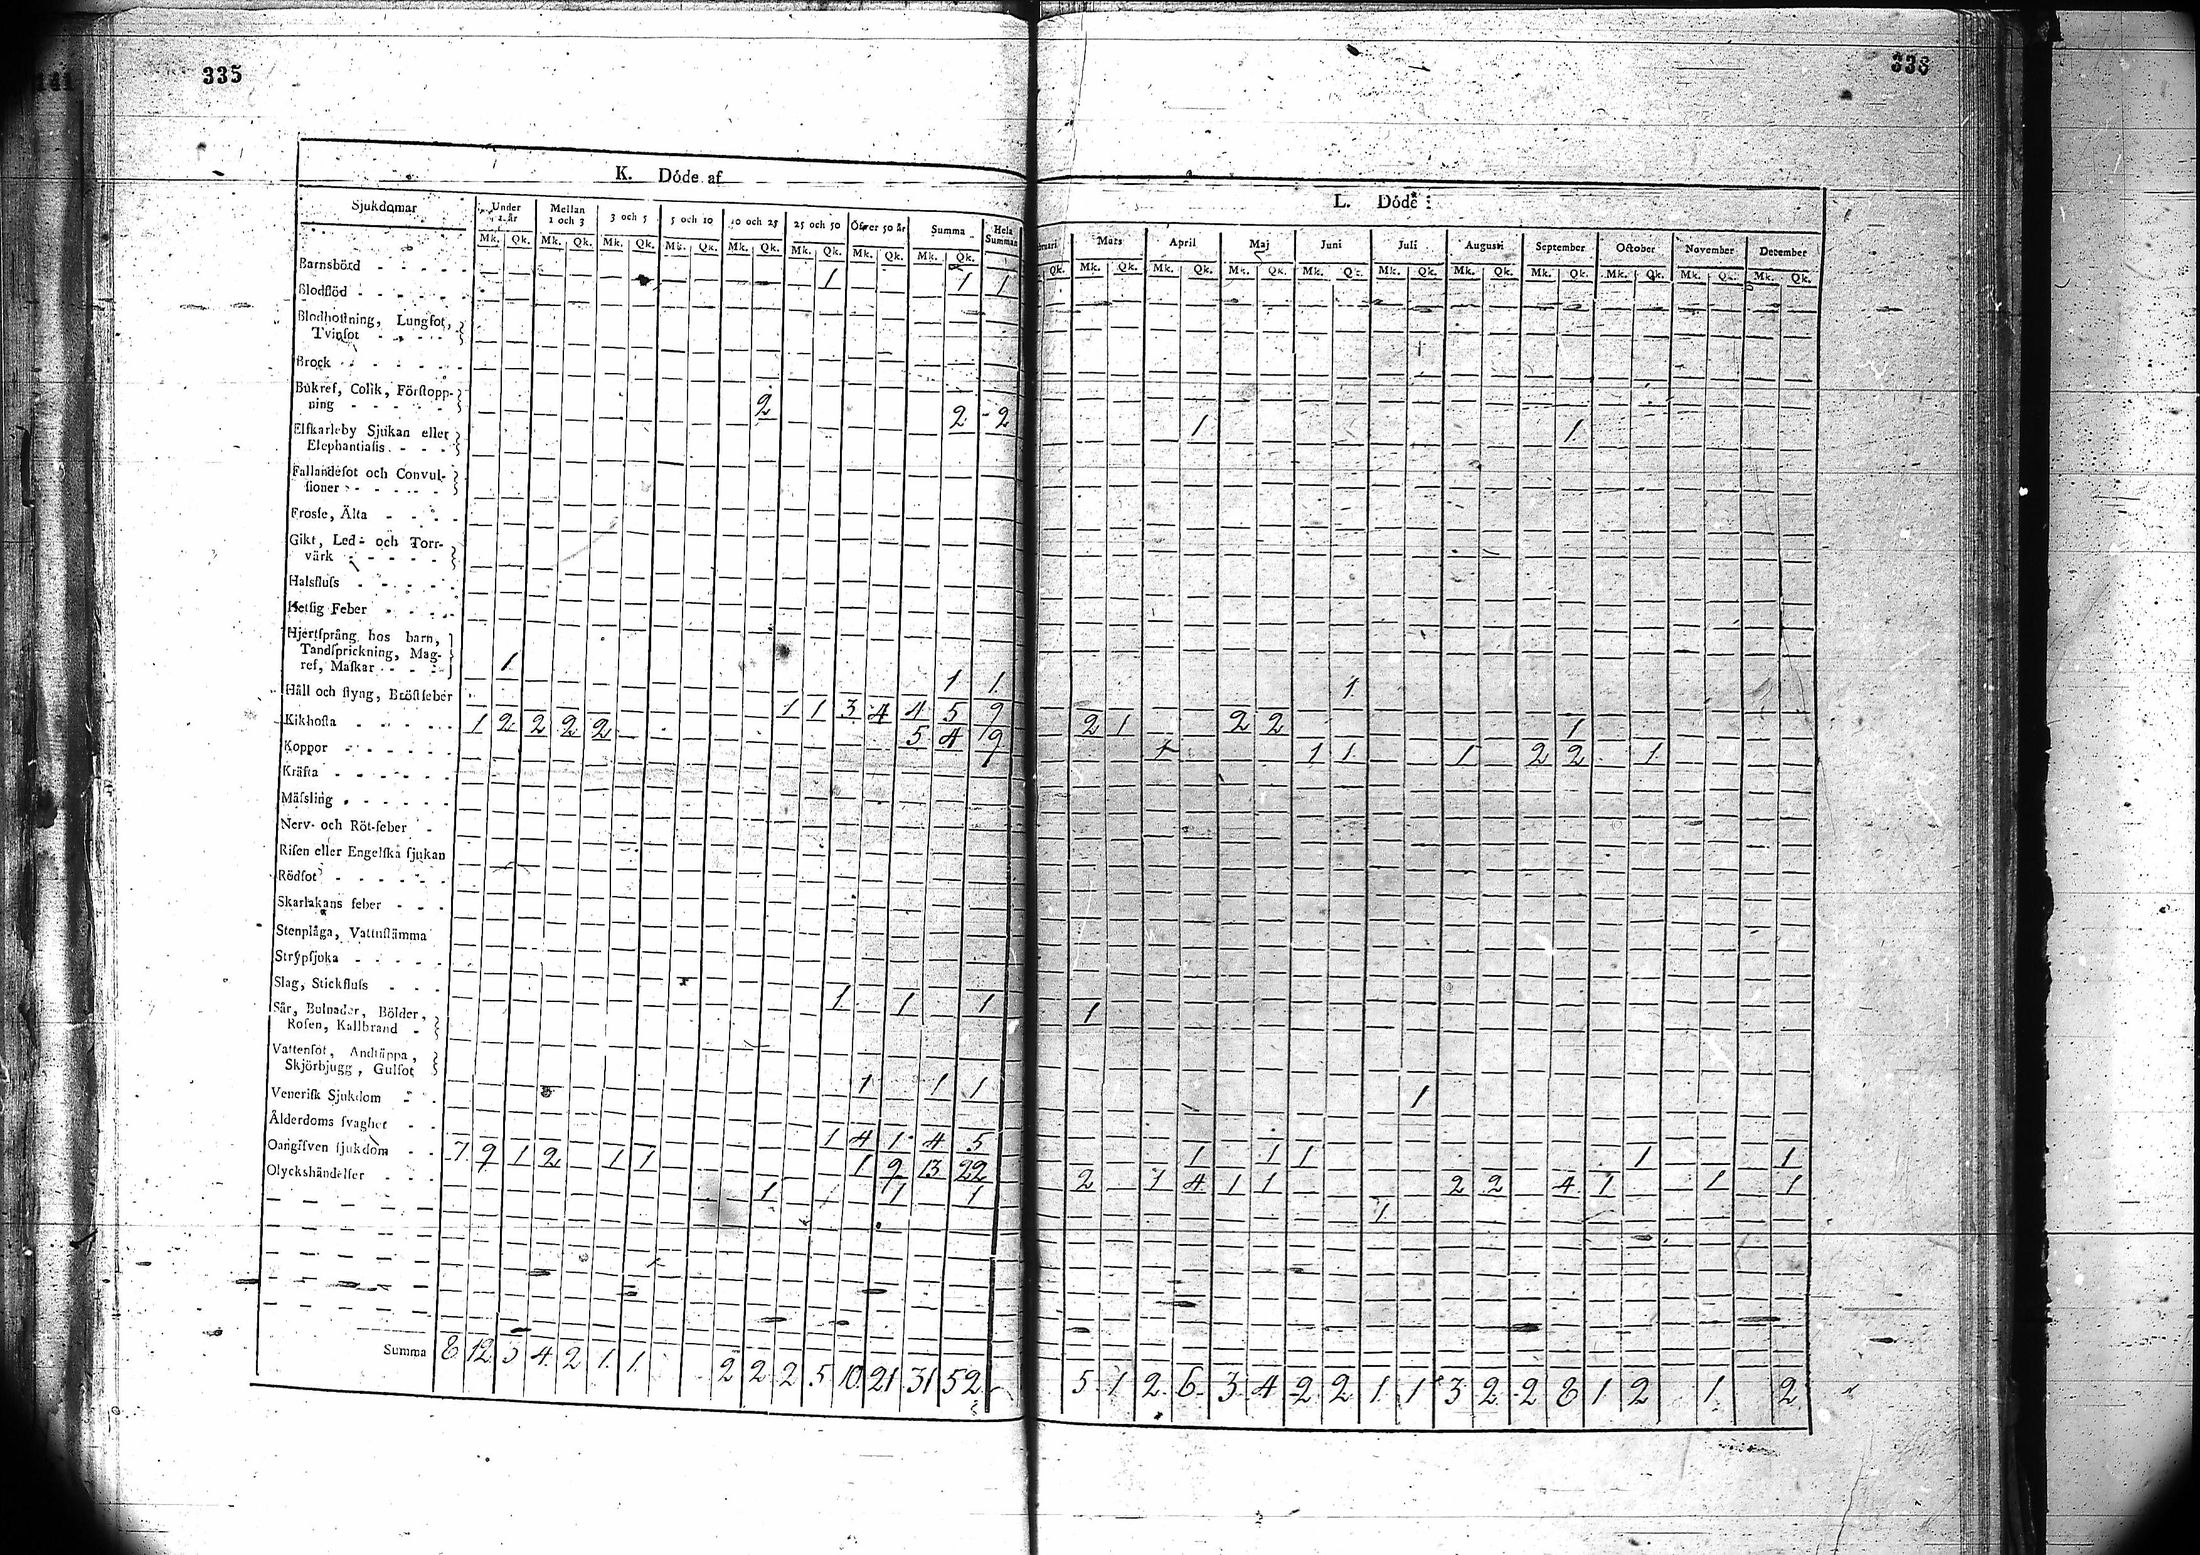 335
336
K. Döde af
Sjukdomar Under 1 år Mellan 1 och 3 3 och 5 5 och 10 10 och 25 25 och 50 Öfver 50 år Summa Hela Summan
Mk. Qk. Mk. Qk. Mk. Qk. Mk. Qk. Mk. Qk. Mk. Qk. Mk. Qk. Mk. Qk.
Barnsbörd - - - - 1 1 1
Blodflöd - - - - -
Blodhoſtning, Lungſot,
Tvinſot - - - -
Brock - - - - -
Bukref, Colik, Förſtopp-
ning - - - - - 2 2 2
Elfkarleby Sjukan eller
Elephantiaſis - - -
Fallandeſot och Convul-
ſioner - - - - -
Froſſe, Älta - - - -
Gikt, Led- och Torr-
värk - - - - -
Halsfluſs - - - - -
Hetſig Feber - - - -
Hjertſprång hos barn,
Tandſprickning, Mag-
ref, Maſkar - - - 1 1 1
Håll och ſtyng, Bröſtfeber 1 1 3 4 4 5 9
Kikhoſta - - - - - 1 2 2 2 2 5 4 9
Koppor - - - - - -
Kräfta - - - - - -
Mäſsling - - - - -
Nerv- och Röt-feber -
Riſen eller Engelſka ſjukan
Rödſot - - - - - -
Skarlakans feber - - -
Stenplåga, Vattuſtämma
Strypſjuka - - - - -
Slag, Stickfluſs - - - 1 1 1
Sår, Bulnader, Bölder,
Roſen, Kallbrand -
Vattenſot, Andtäppa,
Skjörbjugg, Gulſot 1 1 1
Veneriſk Sjukdom - -
Ålderdoms ſvaghet - - 1 4 1 4 5
Oangifven ſjukdom - - 7 9 1 2 1 1 1 9 13 22
Olyckshändelſer - - - 1 1 1
Summa 8 12 3 4 2 1 1 2 2 2 5 10 21 31 52
L. Döde i
Mars April Maj Juni Juli Auguſti September October November December
Qk. Mk. Qk. Mk. Qk. Mk. Qk. Mk. Qk. Mk. Qk. Mk. Qk. Mk. Qk. Mk. Qk. Mk. Qk. Mk. Qk.
1 1
1
2 1 2 2 1
1 1 1 1 2 2 1
1
1
1 1 1 1 1
2 1 4 1 1 2 2 4 1 1 1
1
5 1 2 6 3 4 2 2 1 1 3 2 2 8 1 2 1 2